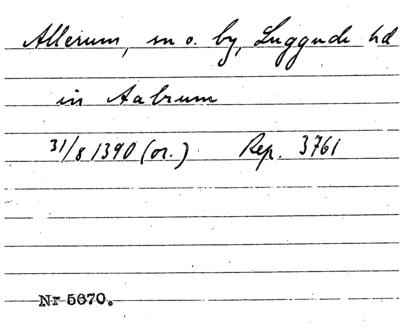 Allerum, sn o. by, Luggude hd
in Aabrum
31/8 1390 (or.) Rep. 3761
Nr 5670.